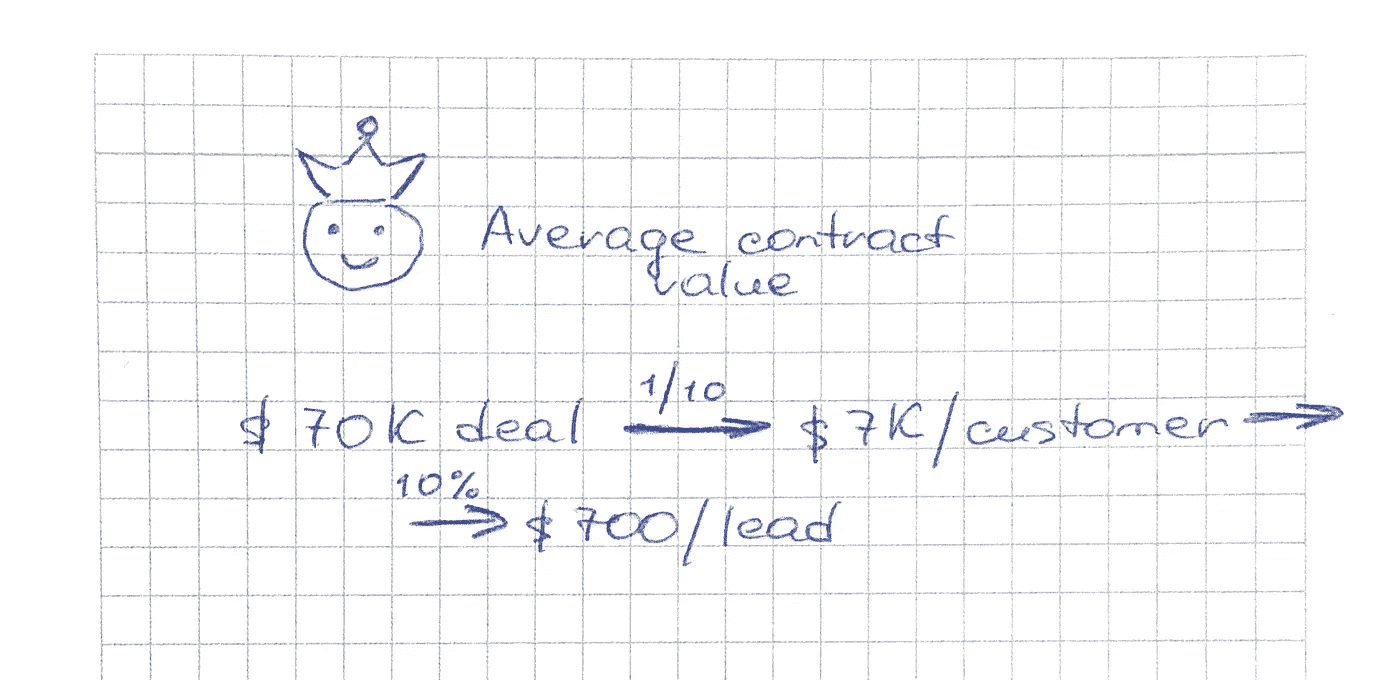 Average contract
value
1/10
$ 70K deal → $ 7K/customer →
10%
→ $ 700/lead